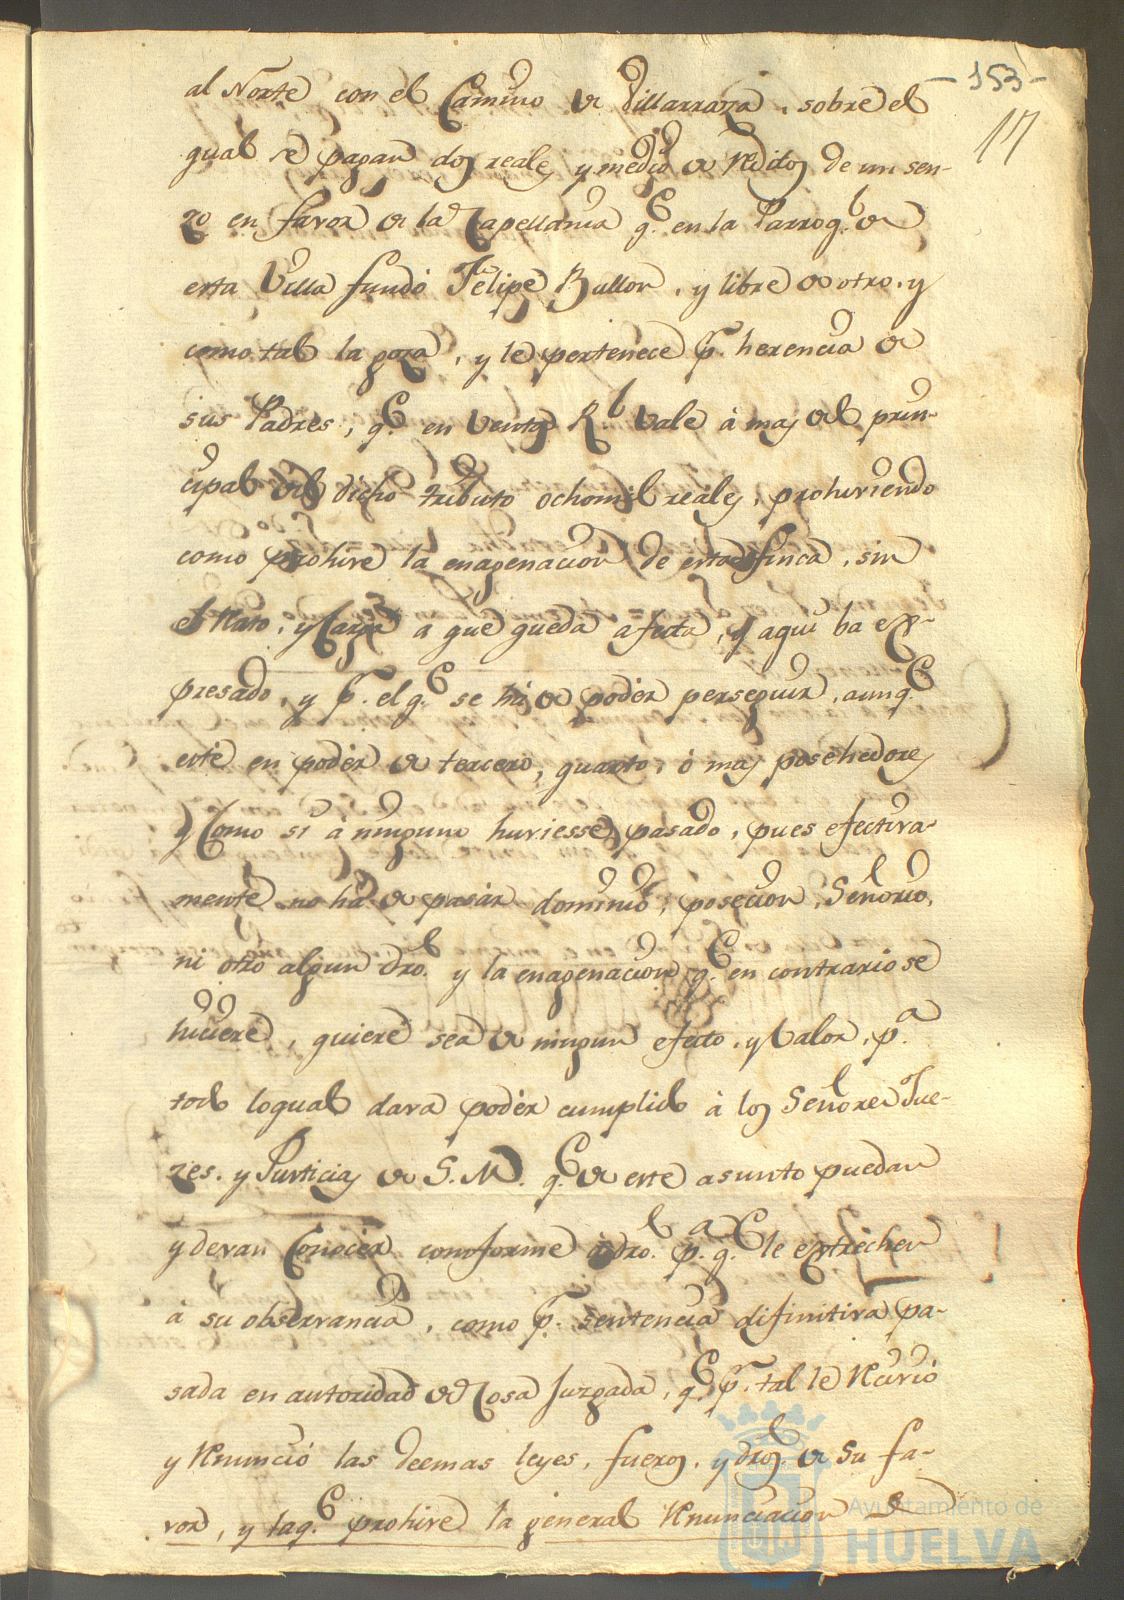 -153-
17
al Norte con el Camino de Villarrasa, sobre el
qual se pagan dos reales y medio de reditos de un sen-
zo en favor de la Capellania q.e en la Parroq.l de
esta Villa fundó Felipe Bullon, y libre de otro, y
como tal la goza, y le pertenece p.r herencia de
sus Padres, q.e en venta R.l vale à mas del prin-
cipal del dicho tributo ochomil reales, prohiviendo
como prohive la enagenacion de esta finca, sin
el Nato, y Carga a que queda afecta, y aqui ba ex-
presado, y p.r el q.e se há de poder perseguir, aunq.e
esté en poder de tercero, quarto, ó mas posehedores
y Como si à ninguno huviesse pasado, pues efectiva-
mente no ha de pasar dominio, posecion, Señorio,
ni otro algun dro. y la enagenacion q.e en contrario se
hiciere, quiere sea de ningun efecto, y Valor, p.a
todo loqual dava poder cumplido à los Señores Jue-
zes, y Justicias de S. M. q.e de este asunto puedan
y devan Conocer conforme à dro. p.a q.e le extrechen
à su observancia, como p.r sentencia difinitiva pa-
sada en autoridad de Cosa Juzgada, q.e p.r tal le recivió
y renunció las deemas leyes, fueros, y dros de Su fa-
vor, y la q.e prohive la general renunciacion
Ayuntamiento de
HUELVA